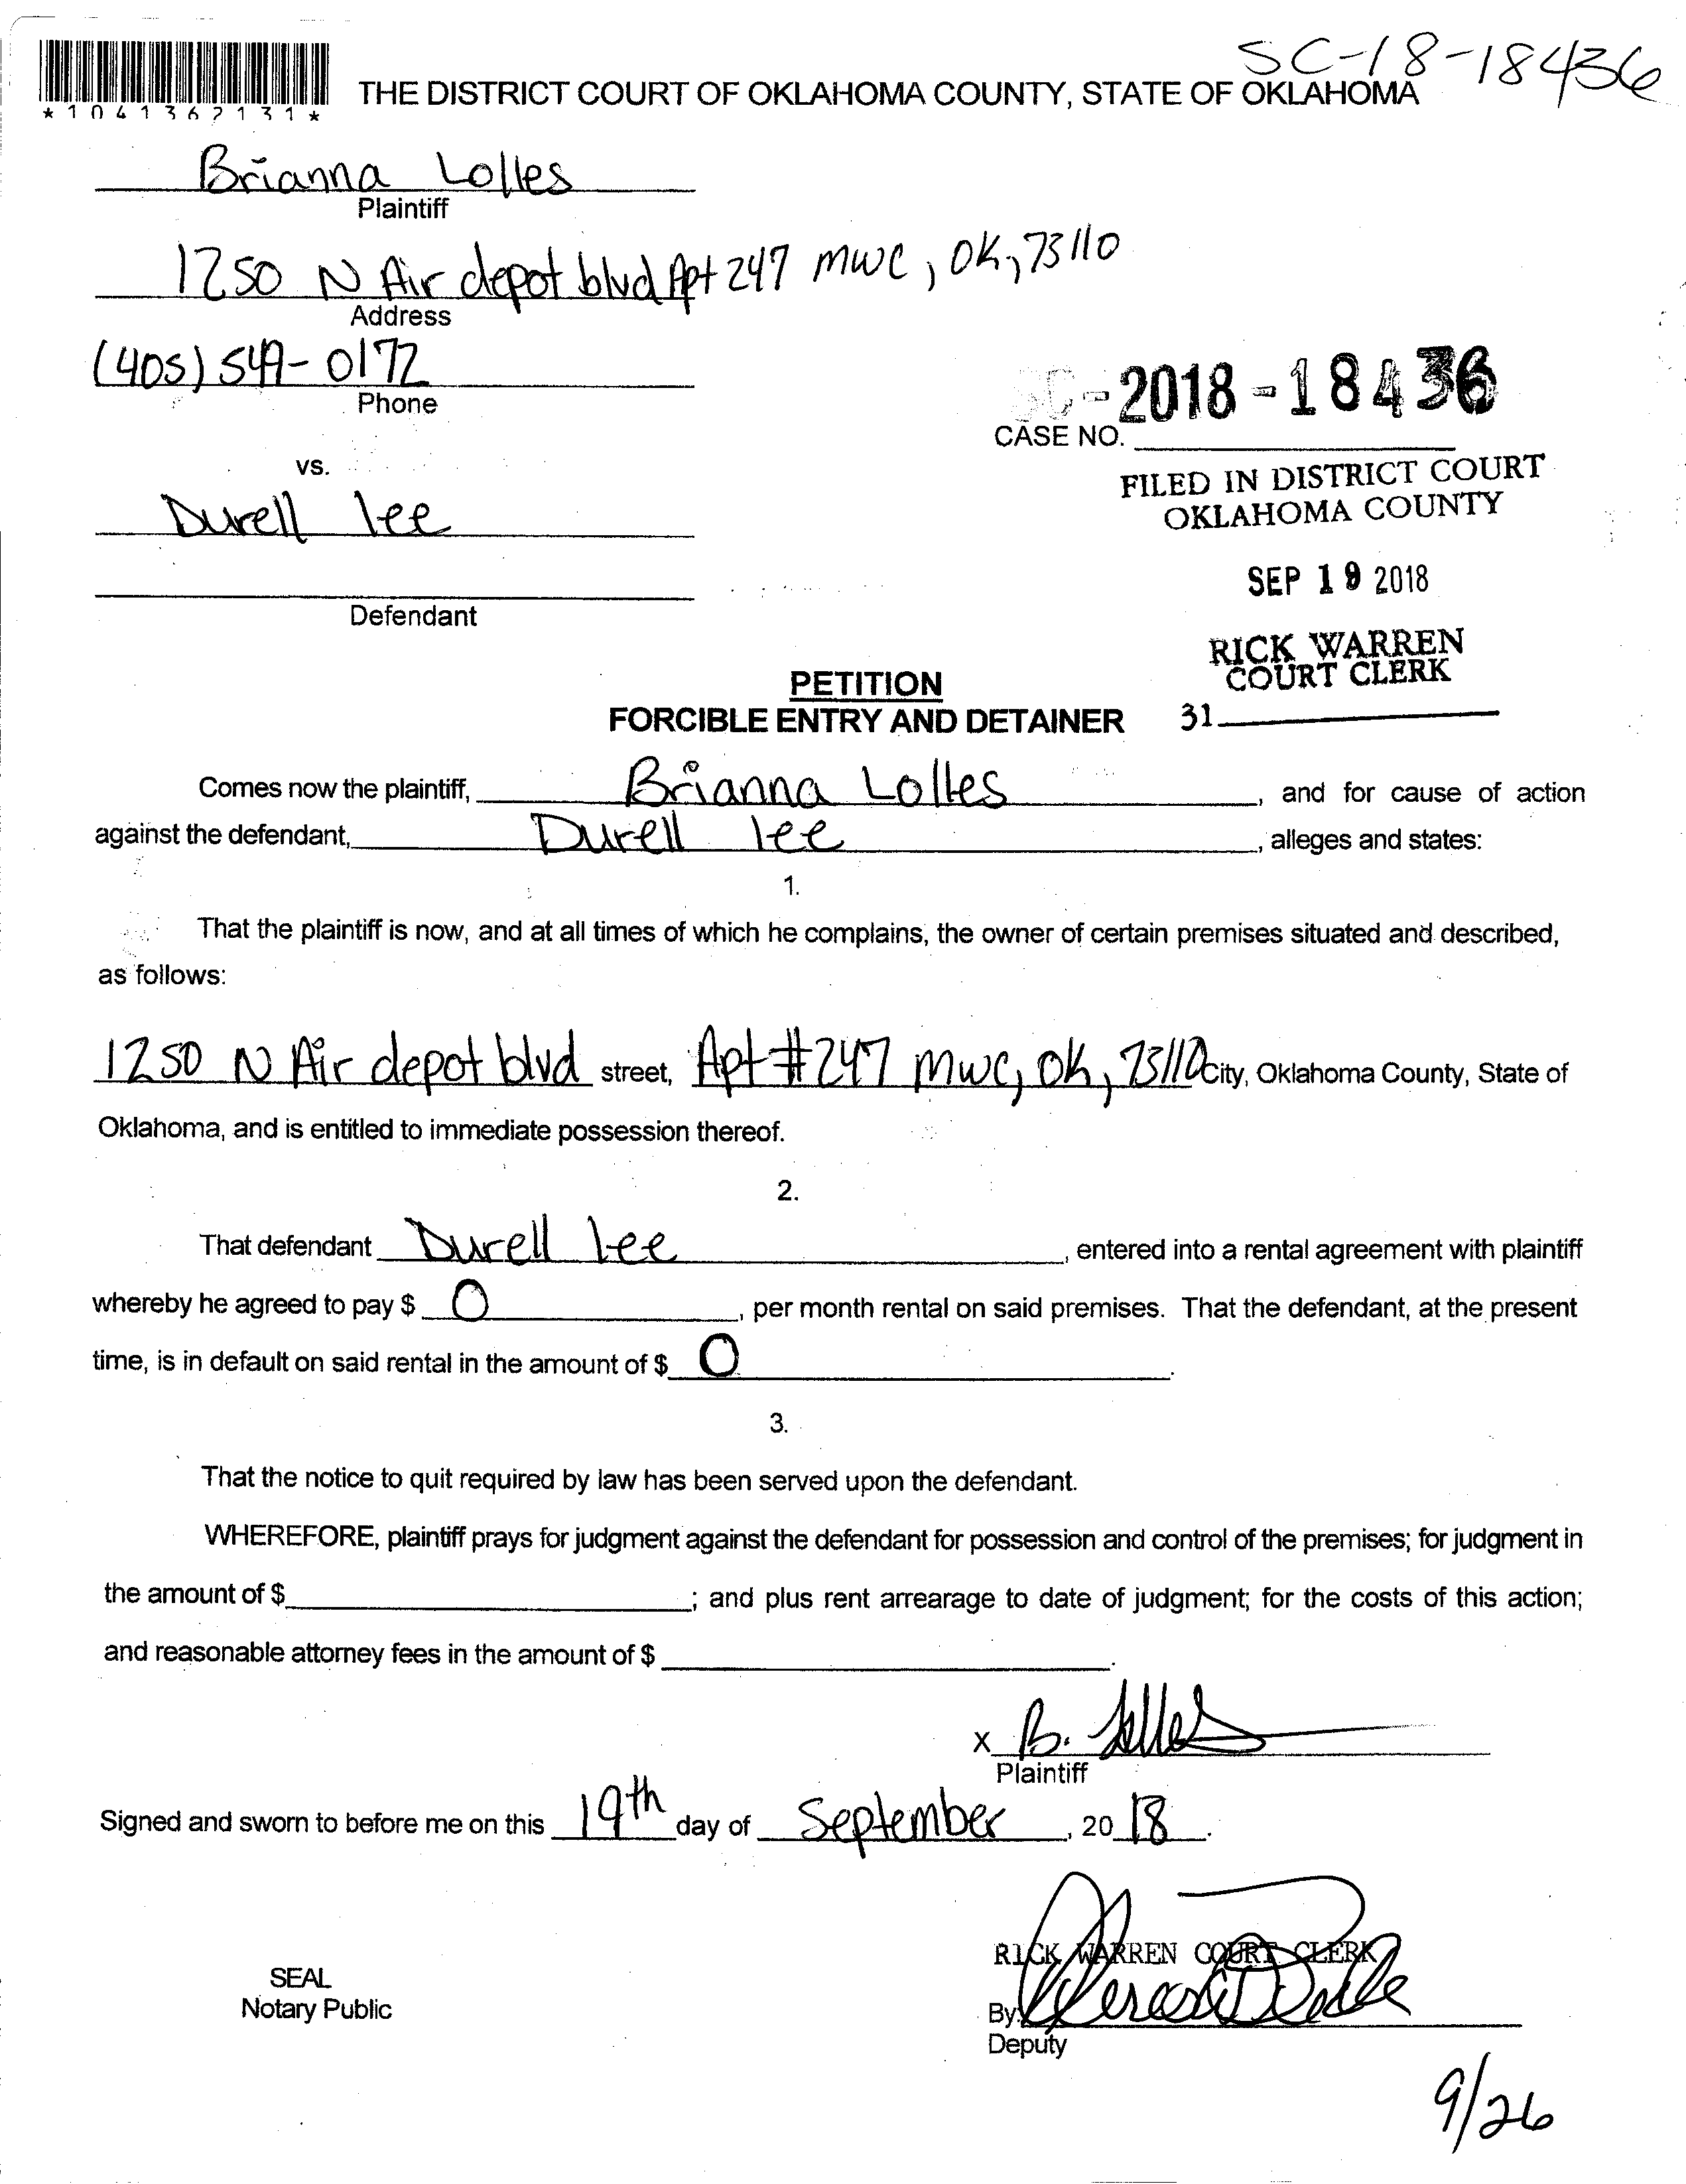 SC-18-18436
*1041362131*
THE DISTRICT COURT OF OKLAHOMA COUNTY, STATE OF OKLAHOMA
Brianna Lolles
Plaintiff
1250 N Air depot blvd Apt 247 mwc, OK, 73110
Address
(405) 549-0172
Phone
SC-2018-18436
CASE NO.
vs.
FILED IN DISTRICT COURT
OKLAHOMA COUNTY
Durell lee
SEP 19 2018
Defendant
RICK WARREN
COURT CLERK
31
PETITION
FORCIBLE ENTRY AND DETAINER
Comes now the plaintiff, Brianna Lolles, and for cause of action
against the defendant, Durell lee, alleges and states:
1.
That the plaintiff is now, and at all times of which he complains, the owner of certain premises situated and described,
as follows:
1250 N Air depot blvd street, Apt #247 mwc, ok, 73110 City, Oklahoma County, State of
Oklahoma, and is entitled to immediate possession thereof.
2.
That defendant Durell lee, entered into a rental agreement with plaintiff
whereby he agreed to pay $ 0, per month rental on said premises. That the defendant, at the present
time, is in default on said rental in the amount of $ 0.
3.
That the notice to quit required by law has been served upon the defendant.
WHEREFORE, plaintiff prays for judgment against the defendant for possession and control of the premises; for judgment in
the amount of $ ; and plus rent arrearage to date of judgment; for the costs of this action;
and reasonable attorney fees in the amount of $ .
X B. Lolles
Plaintiff
Signed and sworn to before me on this 19th day of September, 2018.
RICK WARREN COURT CLERK
SEAL
Notary Public
By:
Deputy
9/26